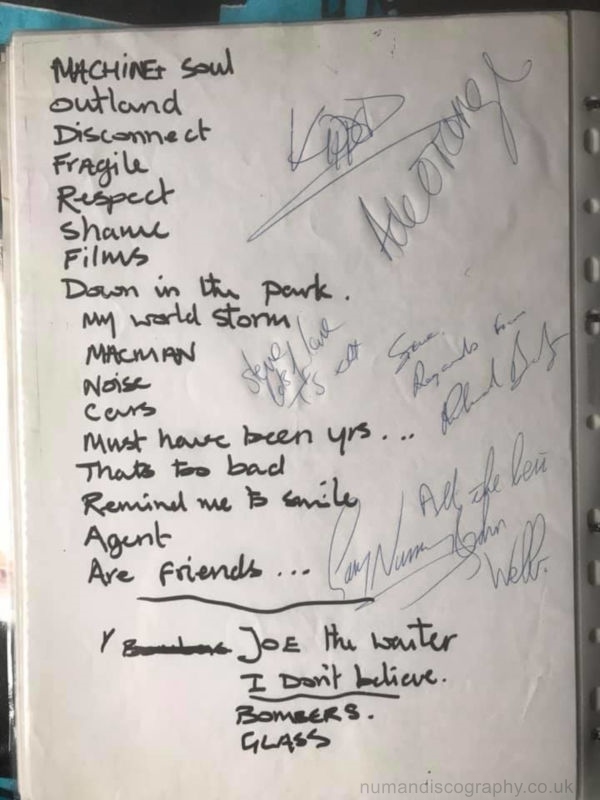 MACHINE+ Soul
outland
Disconnect
Fragile
Respect
Shame
Films
Down in the park.
My world storm
MACMAN
Noise
Cars
Must have been yrs...
Thats too bad
Remind me to smile
Agent
Are friends...
Ade Orange
Steve
Steve
Regards from
All the best
Gary Numan
John
Webb.
Y Bombers JOE the waiter
I Don't believe.
BOMBERS.
GLASS
numandiscography.co.uk